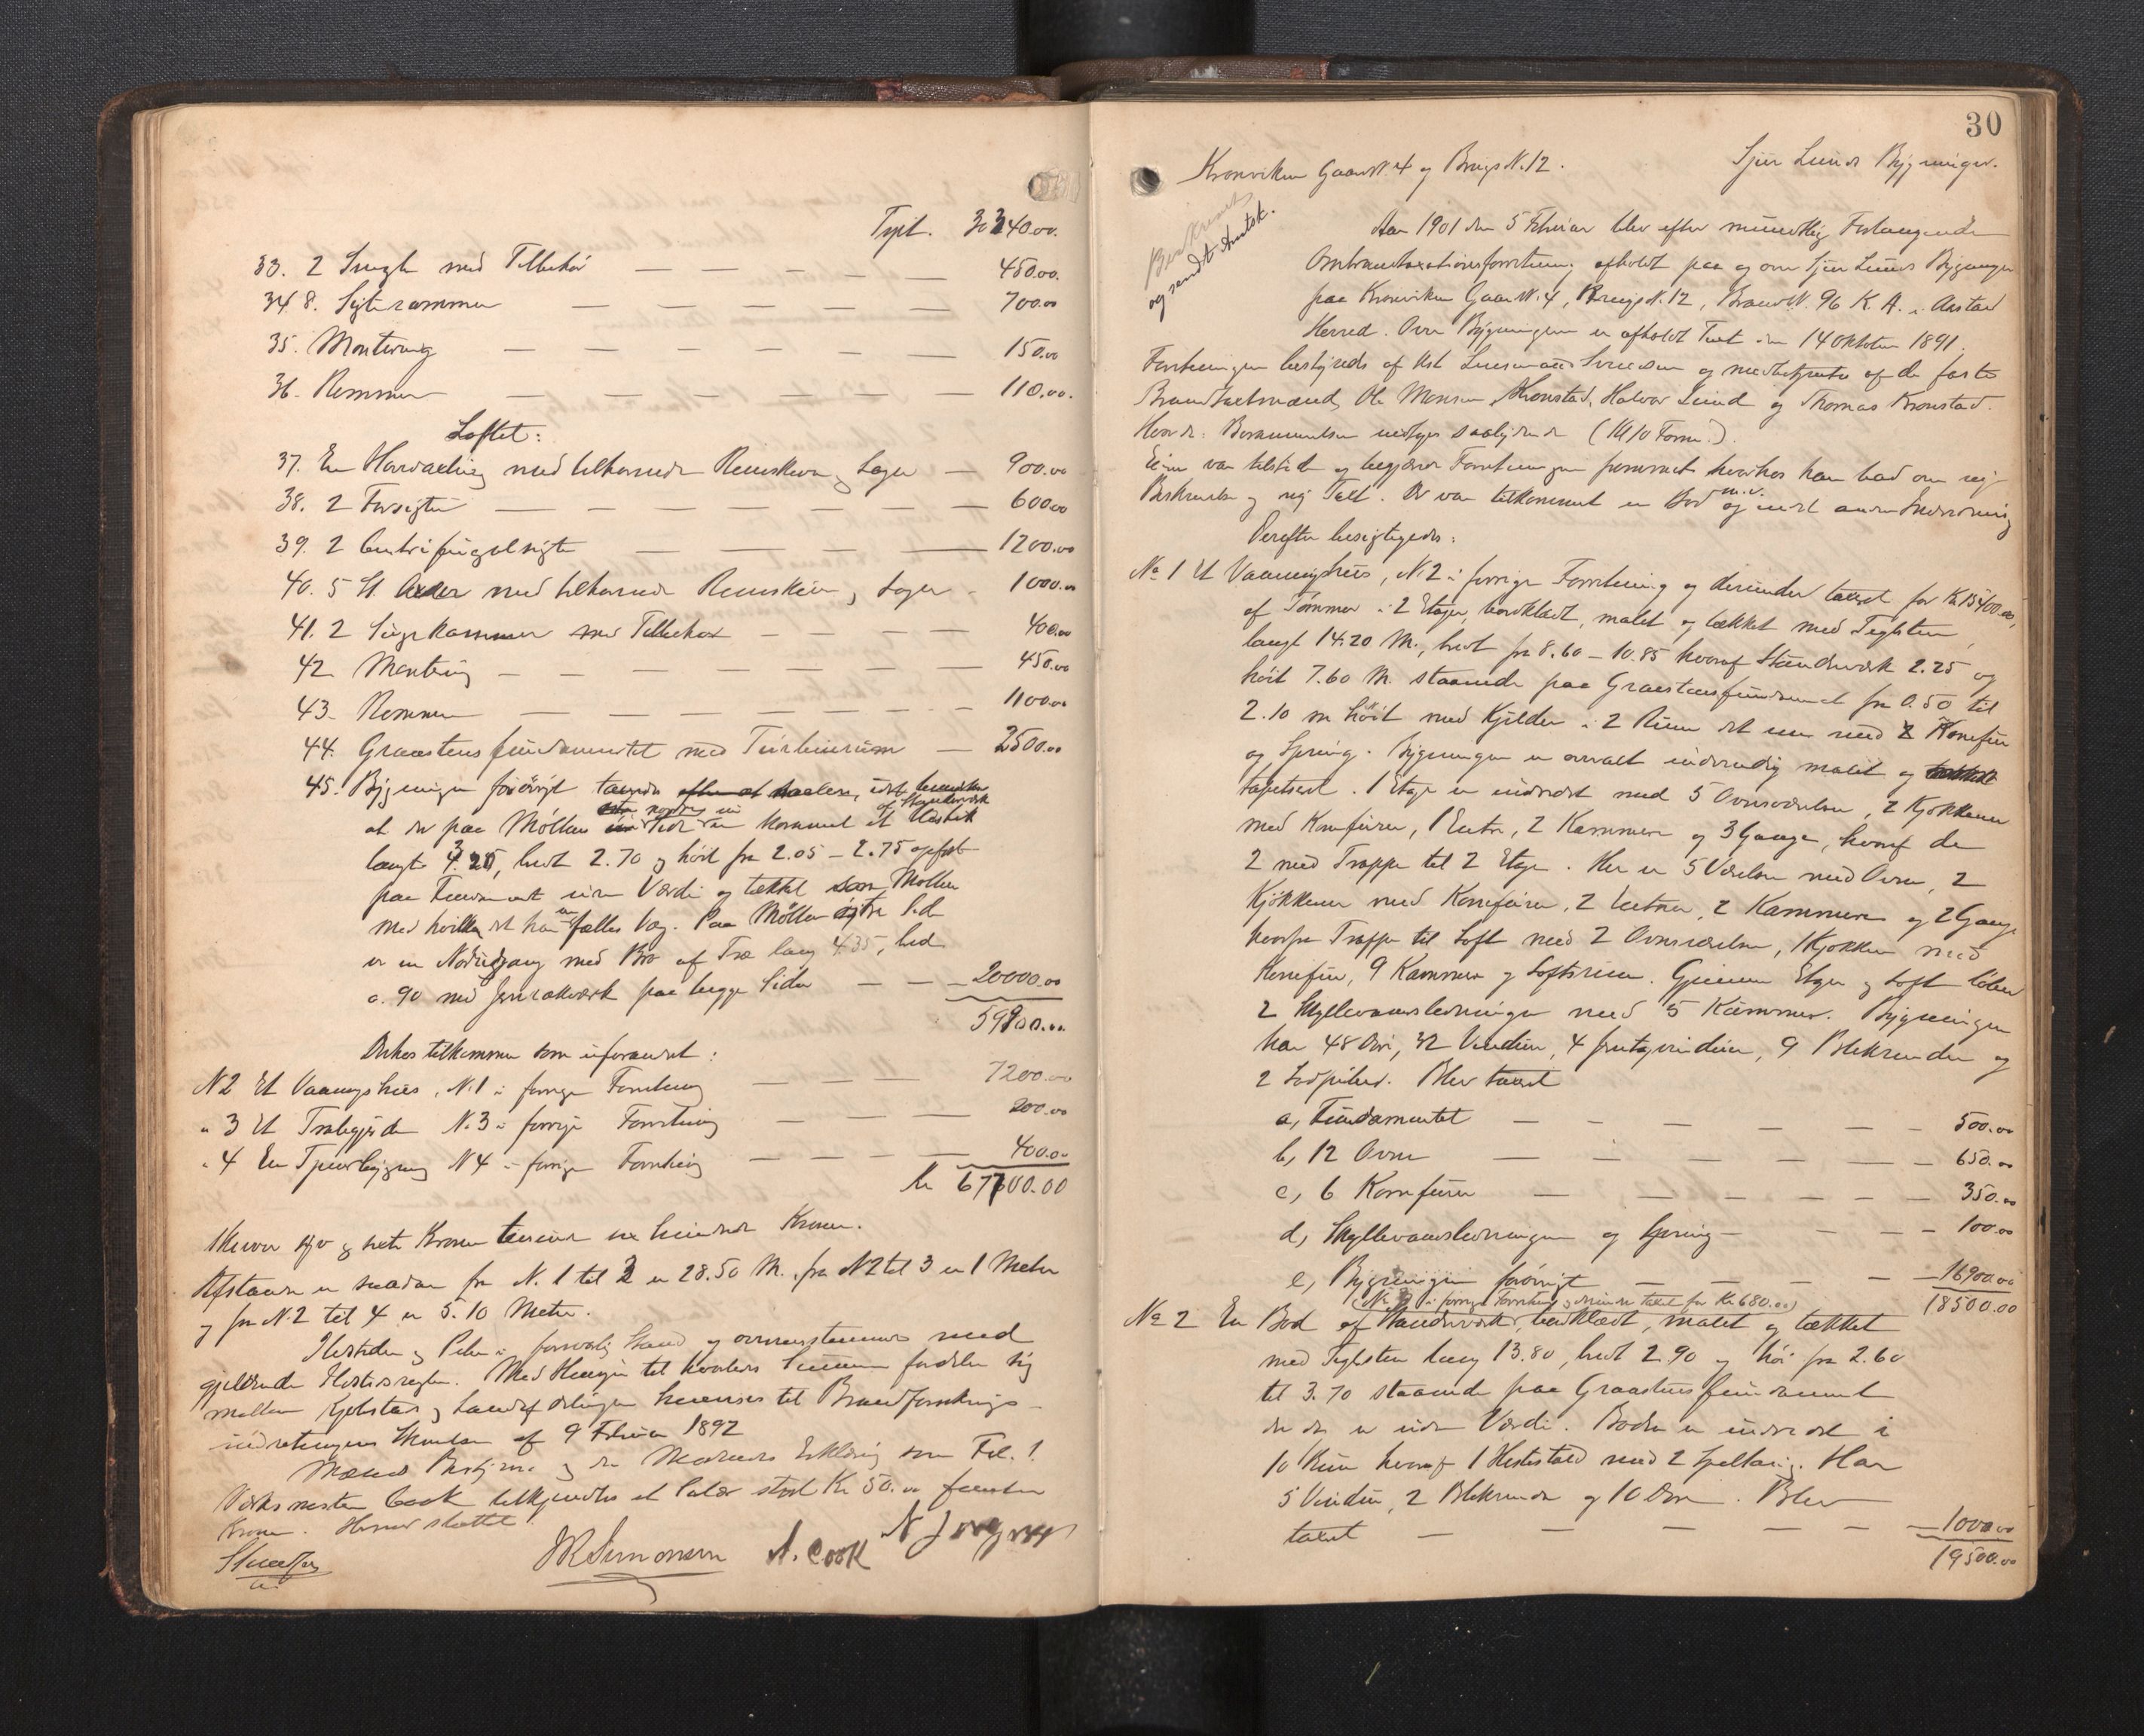 Tspt. 30340.00.
33. 2 med Tilbehør — 450.00.
34 8. Sigterammer — 700.00
35. Montering — 150.00
36. Remmer — 110.00.
Loftet:
37. En med tilhørende Remskiver og Lager — 900.00
38. 2 Forsigter — 600.00
39. 2 Centrifugalsigte — 1200.00
40. 5 St. Axler med tilhørende Remskiver og Lager - 1000.00
41. 2 Sugekammer med Tilbehør — 400.00
42 Montering — 450.00
43. Remmer — 1100.00
44. Graastensfundamentet med Turbinrum — 2500.00
45. Bygningen forøvrigt taxeres bemerkes
at der paa Møllens nordre Side er kommet et af Standerværk
langt 3.25, bredt 2.70 og høit fra 2.05 – 2.75 opført
paa Fundament uden Værdi og tækket som Møllen
med hvilken det har fælles Væg. Paa Møllens østre Side
er en Nødudgang med Bro af Træ lang 4.35, bred
0.90 med Jernrækværk paa begge Sider — 20000.00
59800.00
Derhos tilkommer som uforandret:
N2 Et Vaaningshus, N.1 i forrige Forretning — 7200.00
" 3 Et N.3 i forrige Forretning — 200.00
" 4 En N4 i forrige Forretning — 400.00
Kr 67600.00
Skriver syv og seksti Kroner tusinde sex hundrede Kroner.
Afstanden er saadan fra N. 1 til 2 er 28.50 M. fra N2 til 3 er 1 Meter
og fra N.2 til 4 er 5.10 Meter.
Ildsteder og Piber i forsvarlig Stand og overensstemmende med
gjeldende Med Hensyn til hvorledes Summen fordeler sig
mellem Kjøbstad og Landafdelingen henvises til Brandforsikrings-
indretningens Skrivelse af 9 Februar 1892
Mænd og Erklæring som Fol. 1.
Værksmester Cook tilkjendtes et Salær stort Kr 50.00 femti
Kroner. Hermed sluttet.
JR Simonsen A. Cook N Jørgensen
30
Kronviken GaardsN. 4 og BrugsN. 12. Sjur Lunds Bygninger.
Beskrevet
og sendt Amtsk.
Aar 1901 den 5 Februar blev efter mundtlig Forlangende
Ombrandtaxationsforretning afholdt paa og over Sjur Lunds Bygninger
paa Kronviken GaardsN. 4, BrugsN. 12, BrandN. 96 K. A. i Aarstad
Herred. Over Bygningen er afholdt Taxt den 14 Oktober 1891.
Forretningen bestyredes af Kst Lensmand og medbetjentes af de faste
Brandtaxtmænd, Ole Monsen Kronstad, Halvor Lund og Thomas Kronstad.
Hvorda: Berammelsen indtages saalydende (1910 Form.).
Eieren var tilstede og begjærer Forretningen fremmet hvorhos han bad om ny
Beskrivelse og ny Taxt. Der var tilkommet en Bod m.v. og indr anden Indredning
Derefter besigtigedes:
No 1 Et Vaaningshus, N. 2 i forrige Forretning og derunder taxeret for Kr 15400.00,
af Tømmer i 2 Etager, bordklædt, malet og tækket med Teglsten,
langt 14.20 M., bredt fra 8.60 – 10.85 hvoraf Standerværk 2.25 og
høit 7.60 M. staaende paa Graastensfundament fra 0.50 til
2.10 m høit med Kjelder i 2 Rum det ene med Komfur
og Spring. Bygningen er overalt indvendig malet og
tapetseret. 1 Etage er indredet med 5 Ovnsværelser, 2 Kjøkkener
med Komfurer, 1 Entre, 2 Kammer og 3 Gange, hvoraf de
2 med Trappe til 2 Etage. Her er 5 Værelser med Ovne, 2
Kjøkkener med Komfurer, 2 Entreer, 2 Kammere og 2 Gange
hvorfra Trappe til Loft med 2 Ovnsværelser, 1 Kjøkken med
Komfur, 9 Kammer og Loftsrum. Gjennem Etager og Loft løber
2 Skyllevandsledninger med 5 Kummer. Bygningen
har 48 Døre, 32 Vinduer, 4 fritagvinduer, 9 Blikrender og
2 Lodpiber. Blev taxeret
a, Fundamentet — 500.00
b, 12 Ovne — 650.00
c, 6 Komfurer — 350.00
d, Skyllevandsledningen og Spring — 100.00
e, Bygningen forøvrigt — 16900.00
18500.00
(No 3 i forrige Forretning og derunder taxeret for Kr 680.00)
No 2 En Bod af Standerværk, bordklædt, malet og tækket
med Teglsten lang 13.80, bredt 2.90 og høi fra 2.60
til 3.70 staaende paa Graastensfundament
der er uden Værdi. Boden er indredet i
10 Rum hvoraf 1 Hestestald med 2 Spiltaug. Har
5 Vinduer, 2 Blikrender og 10 Døre. Blev
taxeret — 1000.00
19500.00